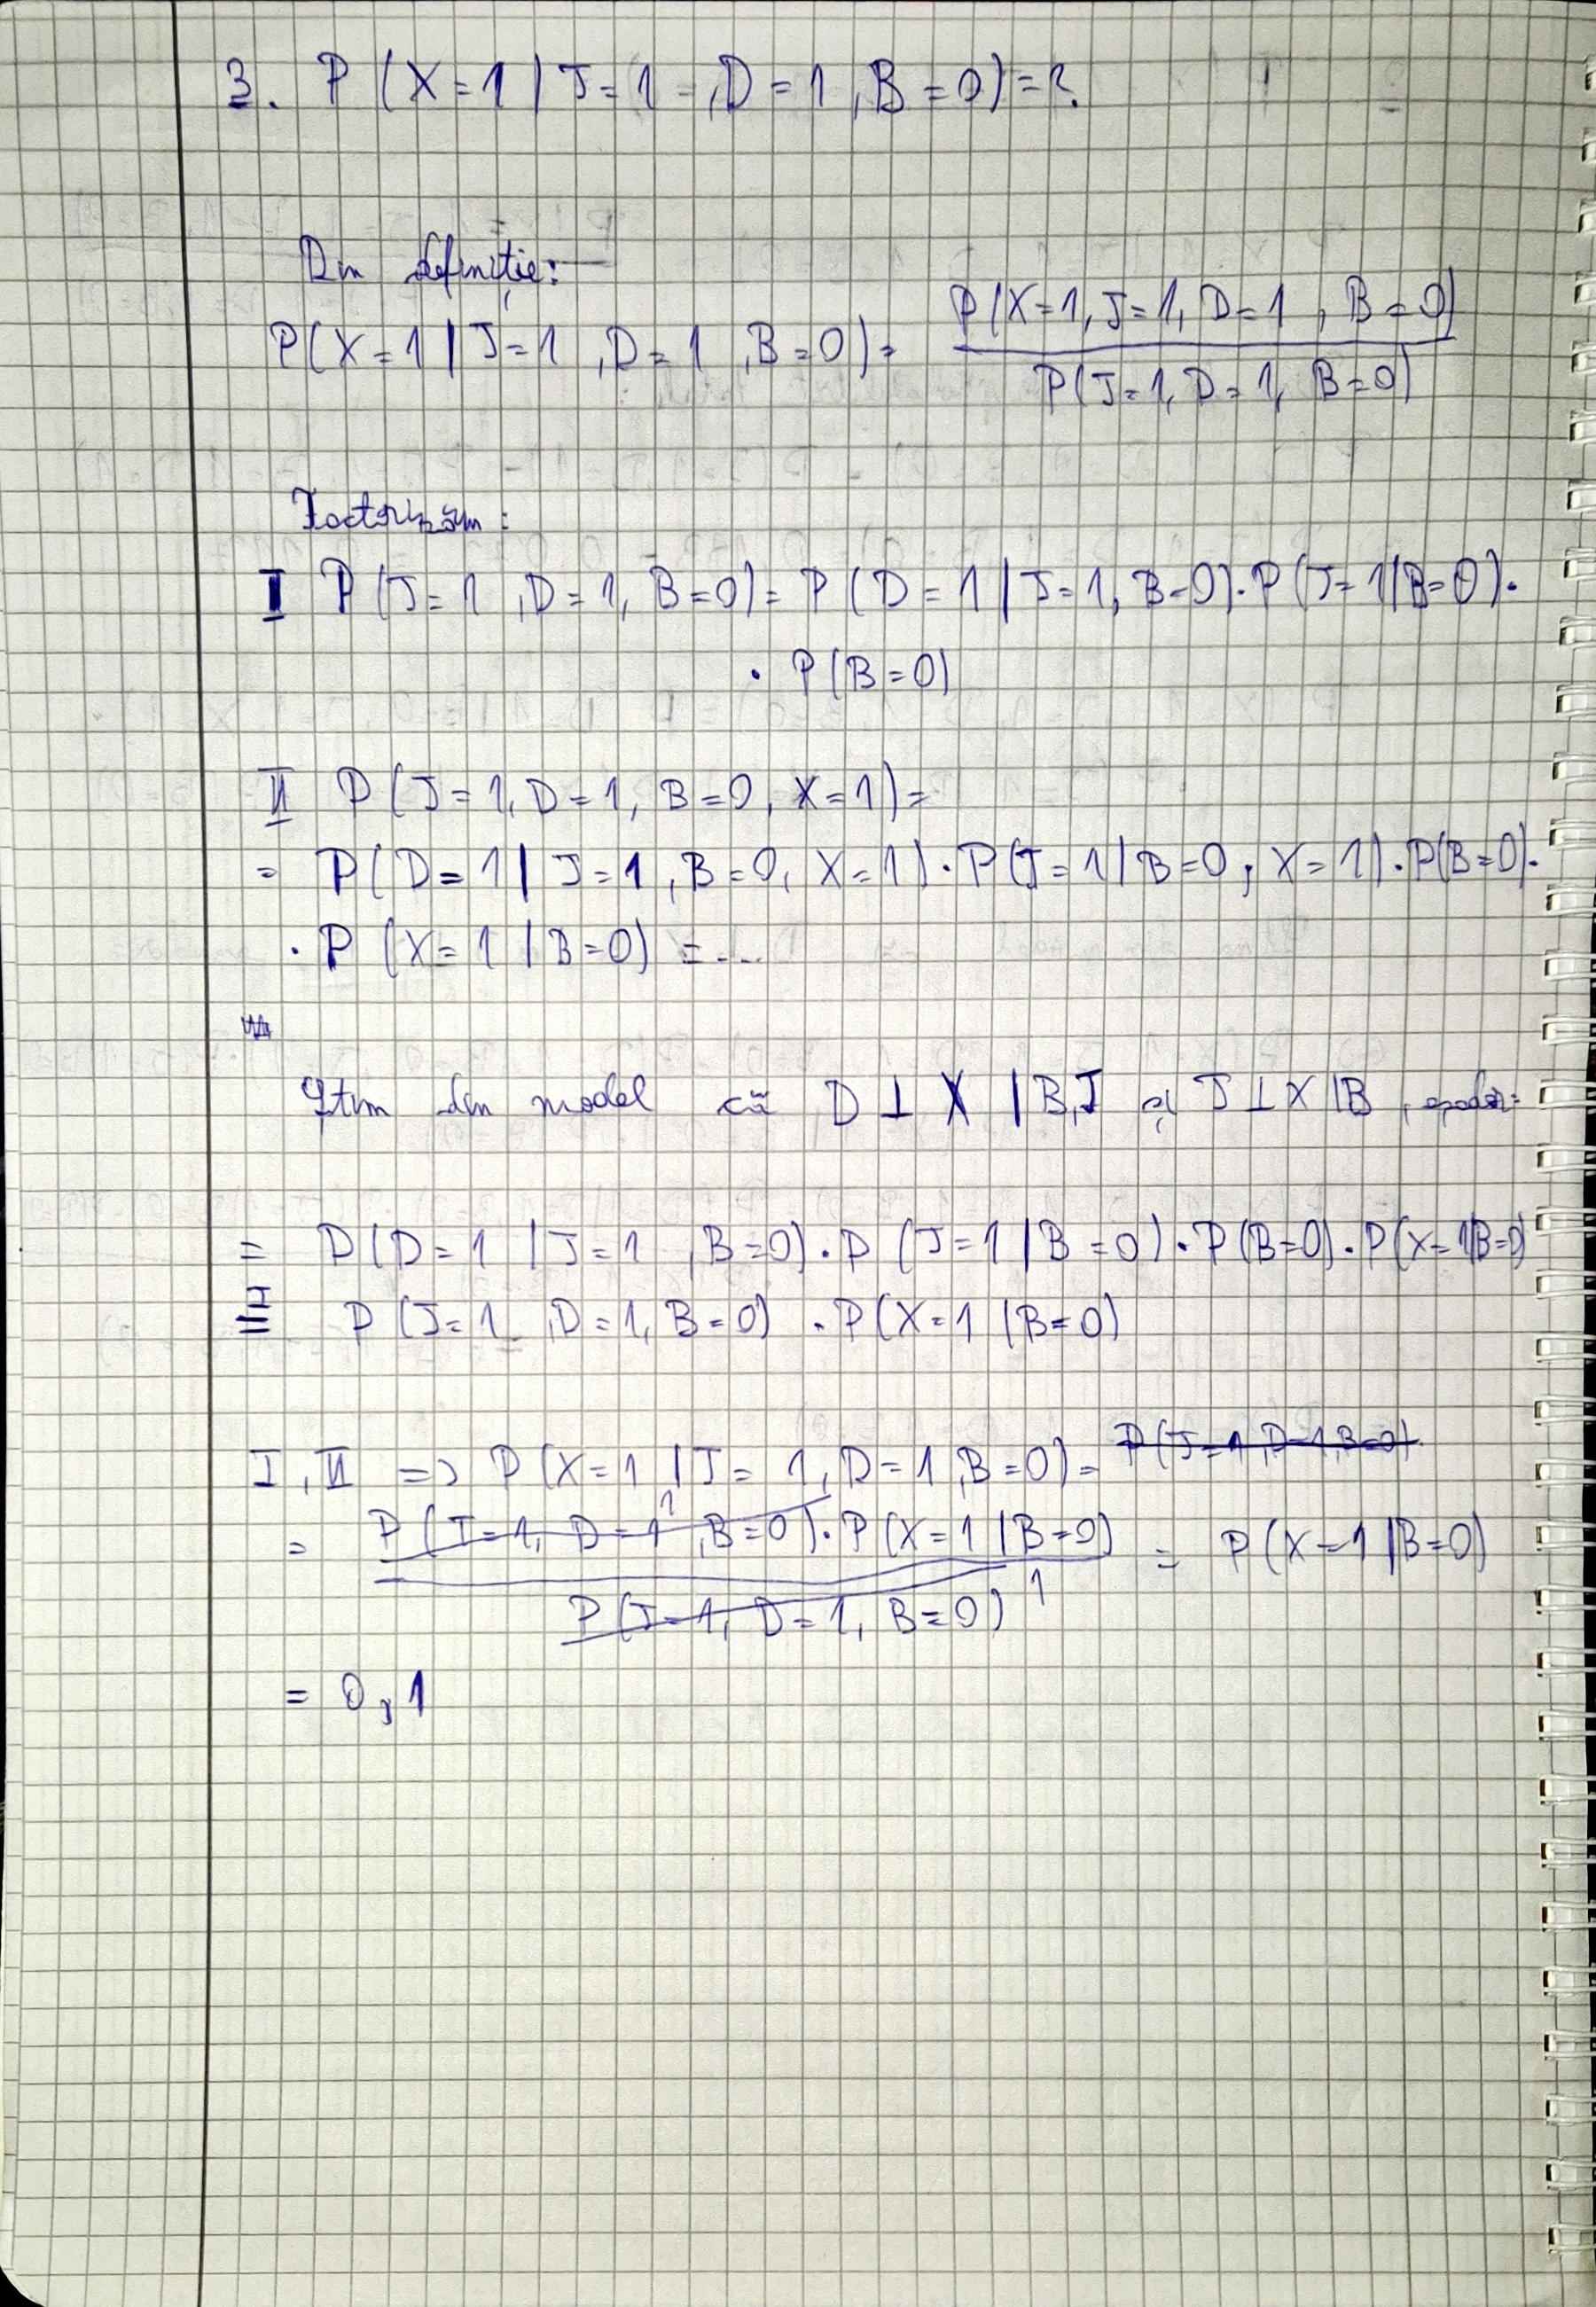 3. P(X=1 | J=1, D=1, B=0)=?
Din definiție:
P(X=1 | J=1, D=1, B=0) = P(X=1, J=1, D=1, B=0)
P(J=1, D=1, B=0)
Factorizăm:
I P(J=1, D=1, B=0) = P(D=1 | J=1, B=0)·P(J=1|B=0)·
· P(B=0)
II P(J=1, D=1, B=0, X=1) =
= P(D=1 | J=1, B=0, X=1)·P(J=1 | B=0, X=1)·P(B=0)·
· P(X=1 | B=0) = ...
Știm din model că D ⊥ X | B,J și J ⊥ X | B, așadar:
= P(D=1 | J=1, B=0)·P(J=1 | B=0)·P(B=0)·P(X=1|B=0)
I
= P(J=1, D=1, B=0) · P(X=1 | B=0)
I, II => P(X=1 | J=1, D=1, B=0) = P(J=1, D=1, B=0)
= P(J=1, D=1, B=0)¹·P(X=1 | B=0) = P(X=1 | B=0)
P(J=1, D=1, B=0) 1
= 0,1